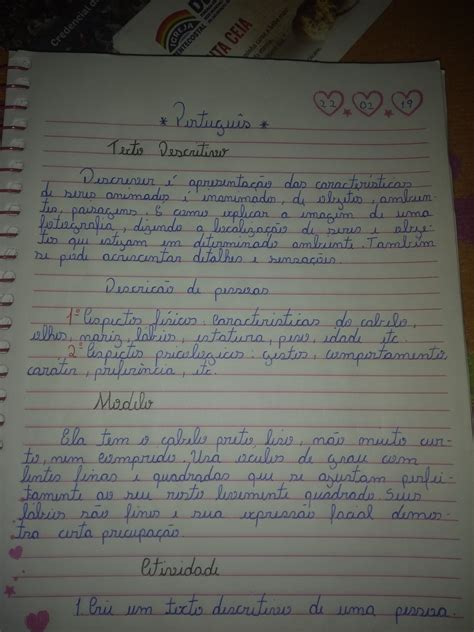 Credencial da
IGREJA
PENTECOSTAL
TA CEIA
22 02 19
* Português *
Texto Descritivo
Descrever é apresentação das características
de seres animados e inanimados, de objetos, ambien
tes, paisagens. É como explicar a imagem de uma
fotografia, dizendo a localização de seres e obje-
tos que estejam em determinado ambiente. Também
se pode acrescentar detalhes e sensações.
Descrição de pessoas
1º Aspectos físicos: características do cabelo,
olhos, nariz, lábios, estatura, peso, idade etc.
2º Aspectos psicologicos: gestos, comportamento
caráter, preferência, etc.
Modelo
Ela tem o cabelo preto, liso, não muito cur-
to, nem comprido. Usa oculos de grau com
lentes finas e quadradas que se ajustam perfei-
tamente ao seu rosto levemente quadrado. Seus
lábios são finos e sua expressão facial demos-
tra certa preocupação
Atividade
1. Crie um texto descritivo de uma pessoa.